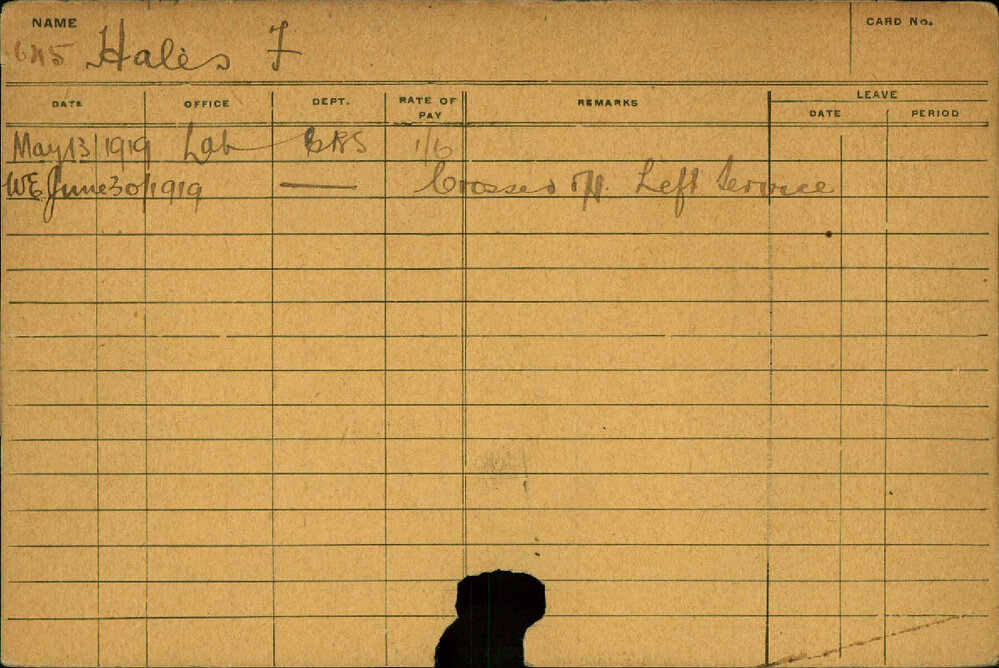 NAME
CARD No.
645 Hales F
DATE OFFICE DEPT. RATE OF PAY REMARKS LEAVE
DATE PERIOD
May 13/1919 Lab CRS 1/6
WE June 30/1919 — Crossed off. Left Service